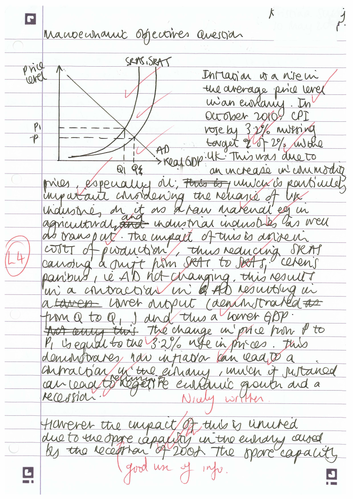 Macroeconomic Objectives Question
Price level
SRAS, SRAS
P1
P
Q1 Q
AD
Real GDP
Inflation is a rise in
the average price level
in an economy. In
October 2010 CPI
rose by 3.2% missing
target of 2%, in the
UK. This was due to
an increase in commodity
prices, especially oil, which is particularly
important considering the reliance of UK
industries on it as a raw material eg in
agricultural, and industrial industries as well
as transport. The impact of this is a rise in
costs of production, thus reducing SRAS
causing a shift from SRAS to SRAS, ceteris
paribus, i.e. AD not changing, this results
in a contraction in AD resulting in
a lower output (demonstrated
from Q to Q1) and thus a lower GDP.
The change in price from P to
P1 is equal to the 3.2% rise in prices. This
demonstrates how inflation can lead to a
contraction in the economy, which if sustained
can lead to negative economic growth and a
recession.
Nicely written
L4
However the impact of this is limited
due to the spare capacity in the economy caused
by the recession of 2009. The spare capacity
good use of info.